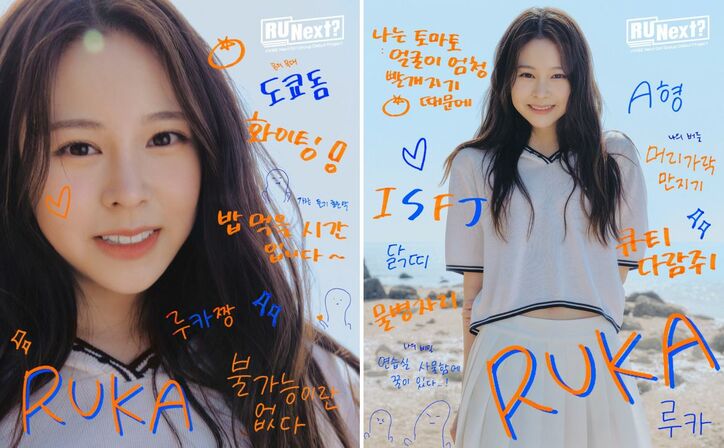 RU Next?
꿈의 무대
도쿄돔
화이팅!!
밥 먹을 시간
입니다~
루카짱
RUKA
불가능이란
없다
RU Next?
나는 토마토
: 얼굴이 엄청
빨개지기
때문에
A형
나의 버릇
머리카락
만지기
ISFJ
닭띠
큐티
다람쥐
물병자리
나의 비밀
연습실 사물함에
꿀이 있다..!
RUKA
루카